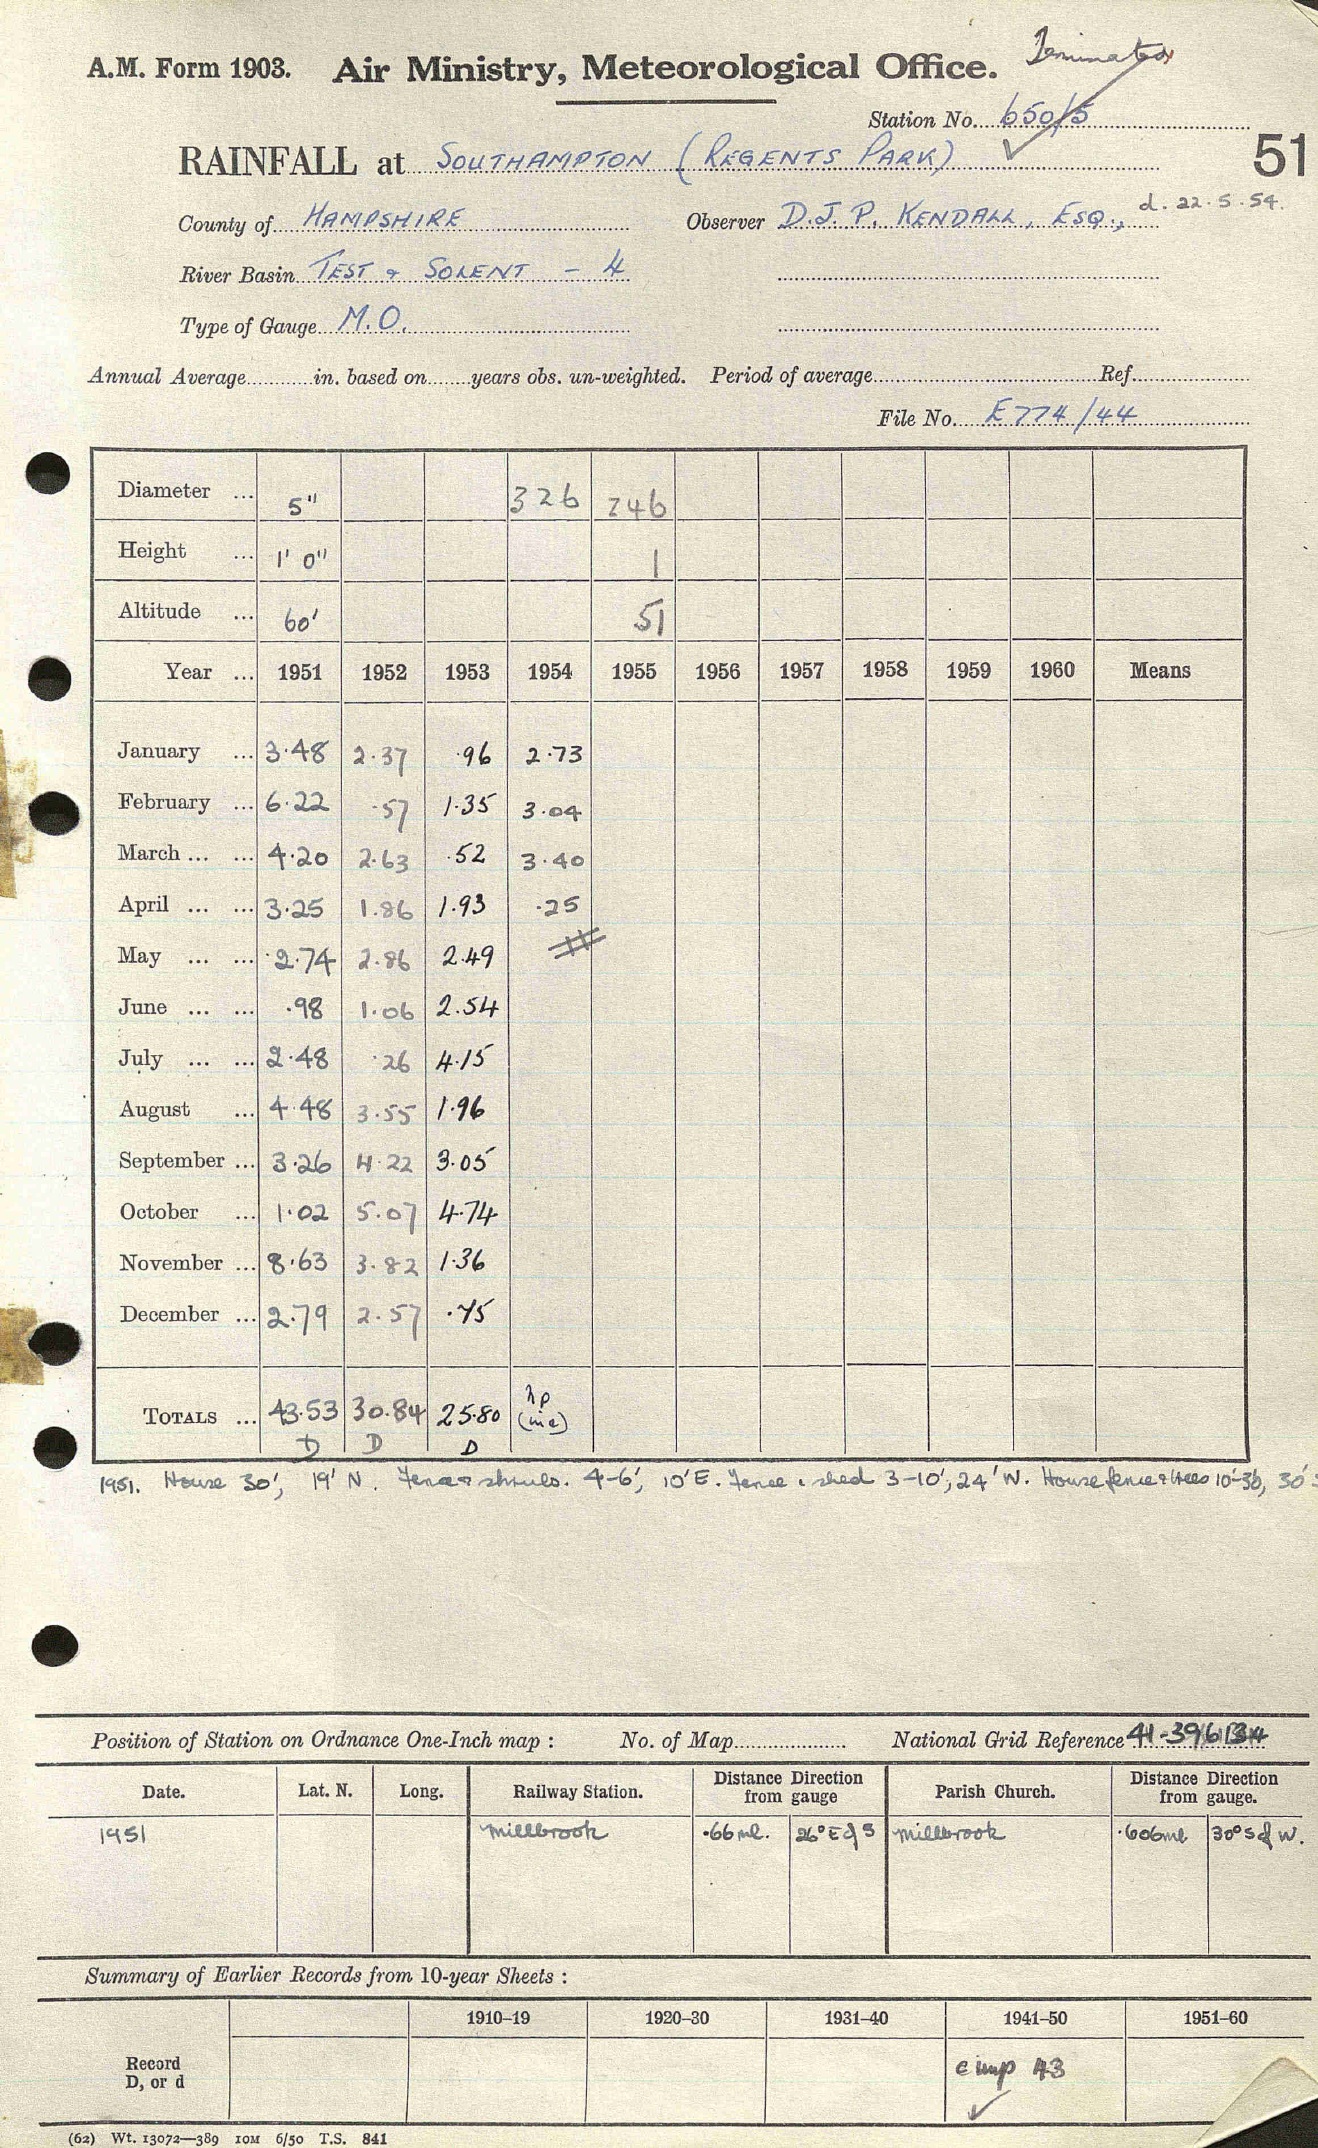 Terminated
A.M. Form 1903. Air Ministry, Meteorological Office.
Station No. 650/5
RAINFALL at SOUTHAMPTON (REGENTS PARK) 51
County of HAMPSHIRE Observer D.J.P. KENDALL, ESQ., d. 22.5.54.
River Basin TEST & SOLENT - 4
Type of Gauge M.O.
Annual Average in. based on years obs. un-weighted. Period of average Ref.
File No. E774/44
Diameter ... 5" 326 246
Height ... 1' 0" 1
Altitude ... 60' 51
Year ... 1951 1952 1953 1954 1955 1956 1957 1958 1959 1960 Means
January ... 3.48 2.37 .96 2.73
February ... 6.22 .57 1.35 3.04
March ... ... 4.20 2.63 .52 3.40
April ... ... 3.25 1.86 1.93 .25
May ... ... 2.74 2.86 2.49
June ... ... .98 1.06 2.54
July ... ... 2.48 .26 4.15
August ... 4.48 3.55 1.96
September ... 3.26 4.22 3.05
October ... 1.02 5.07 4.74
November ... 8.63 3.82 1.36
December ... 2.79 2.57 .75
TOTALS ... 43.53 30.84 25.80
D D D
1951. House 30', 19' N. Fence & shrubs. 4-6', 10' E. Fence & shed 3-10', 24' W. House fence & trees 10'-30, 30' S
Position of Station on Ordnance One-Inch map : No. of Map National Grid Reference 41-396134
Date. Lat. N. Long. Railway Station. Distance Direction from gauge Parish Church. Distance Direction from gauge.
1951 Millbrook .66 ml. 26° E of S Millbrook .606 ml 30° S of W.
Summary of Earlier Records from 10-year Sheets :
1910–19 1920–30 1931–40 1941–50 1951–60
Record
D, or d
c imp 43
(62) Wt. 13072—389 10M 6/50 T.S. 841